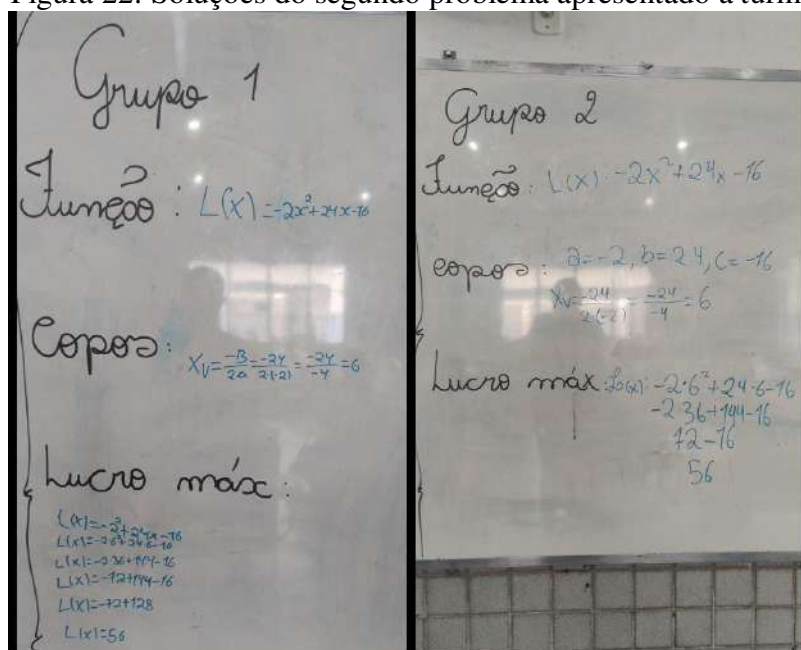 Figura 22: Soluções do segundo problema apresentado à turm
Grupo 1
Função: L(x)=-2x²+24x-16
Copos: Xv=-B/2a=-24/2(-2)=-24/-4=6
Lucro máx:
L(x)=-2²+24x-16
L(x)=-2·6²+24·6-16
L(x)=-2·36+144-16
L(x)=-72+144-16
L(x)=-72+128
L(x)=56
Grupo 2
Função: L(x)·-2x²+24x-16
copos: a=-2, b=24, c=-16
Xv=-24/2(-2)=-24/-4=6
Lucro máx: -2·6²+24·6-16
-2·36+144-16
72-16
56